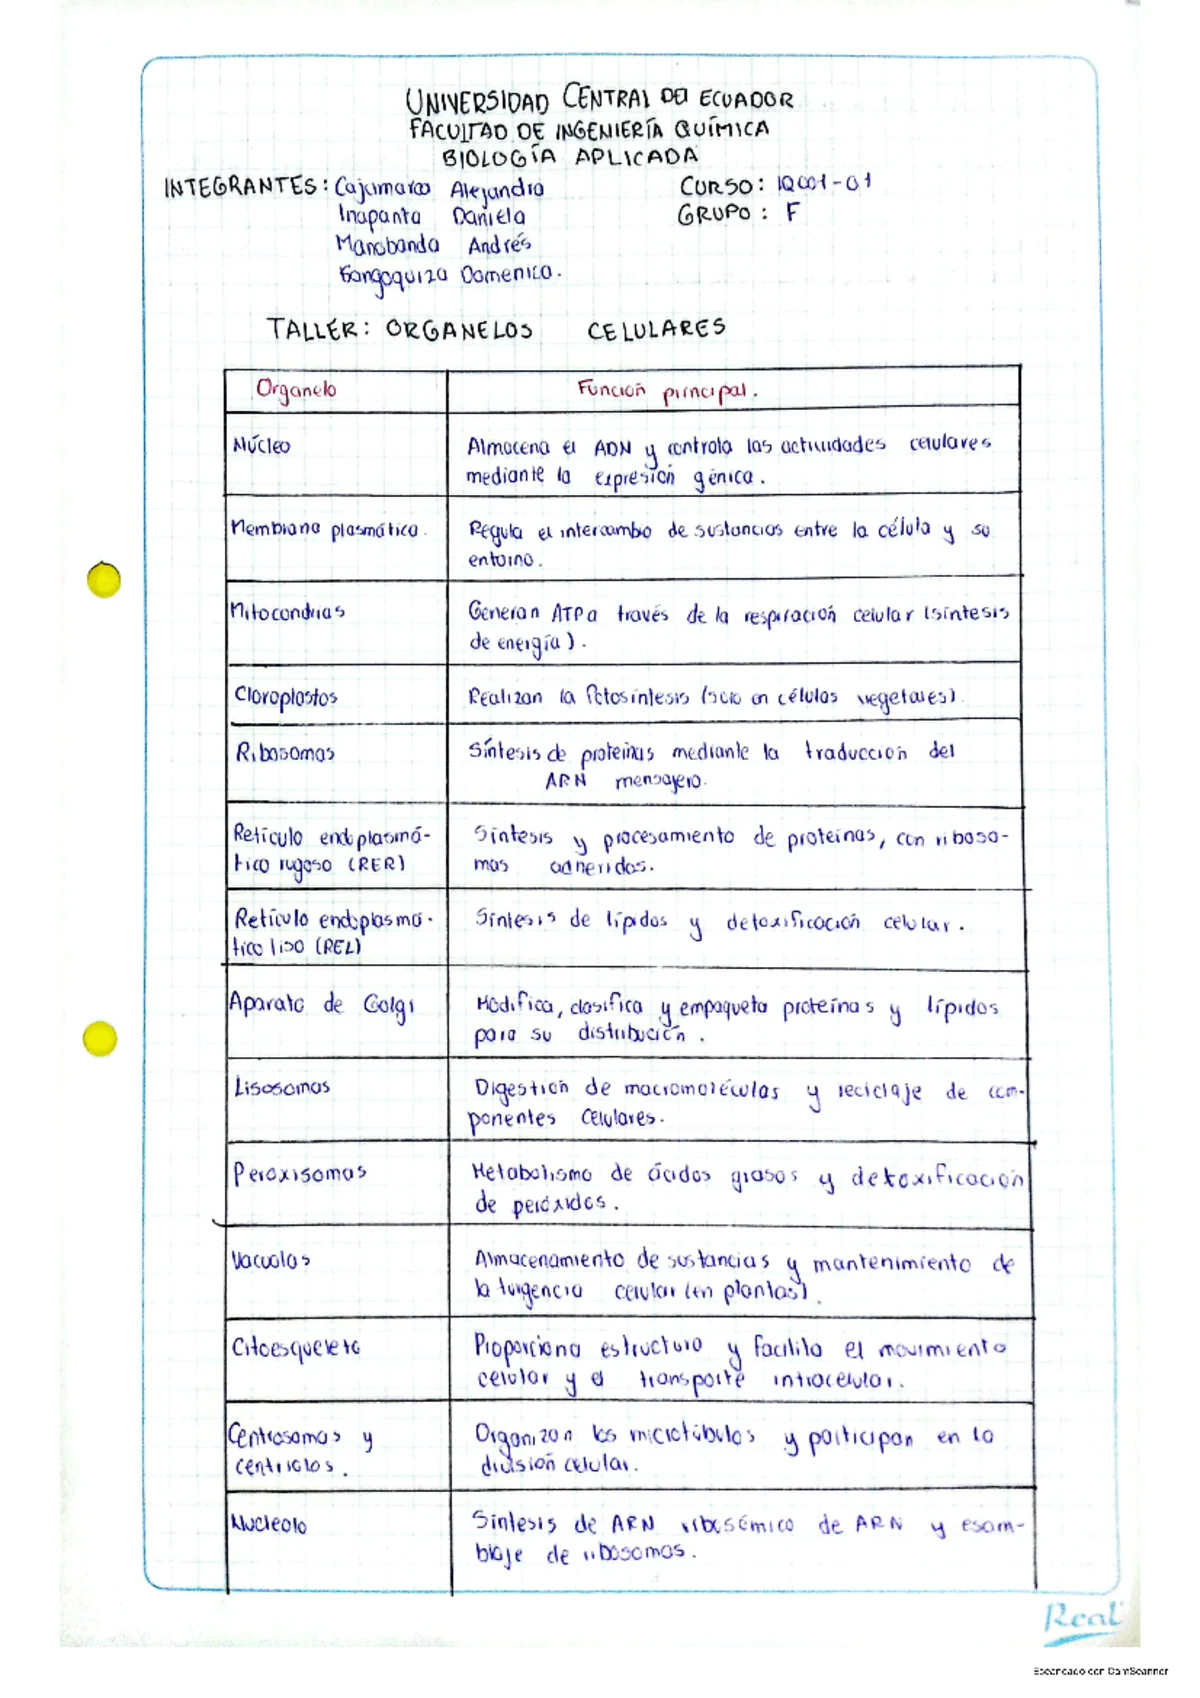 UNIVERSIDAD CENTRAL DEL ECUADOR
FACULTAD DE INGENIERÍA QUÍMICA
BIOLOGÍA APLICADA
INTEGRANTES: Cajamarca Alejandro CURSO: IQ001-01
Inapanta Daniela GRUPO: F
Manobanda Andrés
Gangoquiza Domenica.
TALLER: ORGANELOS CELULARES
Organelo Función principal.
Núcleo Almacena el ADN y controla las actividades celulares
mediante la expresión génica.
Membrana plasmática. Regula el intercambio de sustancias entre la célula y su
entorno.
Mitocondrias Generan ATP a través de la respiración celular (síntesis
de energía).
Cloroplastos Realizan la fotosíntesis (solo en células vegetales).
Ribosomas Síntesis de proteínas mediante la traducción del
ARN mensajero.
Retículo endoplasmá- Síntesis y procesamiento de proteínas, con riboso-
tico rugoso (RER) mas adheridos.
Retículo endoplasmá- Síntesis de lípidos y detoxificación celular.
tico liso (REL)
Aparato de Golgi Modifica, clasifica y empaqueta proteínas y lípidos
para su distribución.
Lisosomas Digestión de macromoléculas y reciclaje de com-
ponentes celulares.
Peroxisomas Metabolismo de ácidos grasos y detoxificación
de peróxidos.
Vacuolas Almacenamiento de sustancias y mantenimiento de
la turgencia celular (en plantas).
Citoesqueleto Proporciona estructura y facilita el movimiento
celular y el transporte intracelular.
Centrosomas y Organizan los microtúbulos y participan en la
centriolos. división celular.
Nucleolo Síntesis de ARN ribosómico de ARN y esam-
blaje de ribosomas.
Real
Escaneado con CamScanner